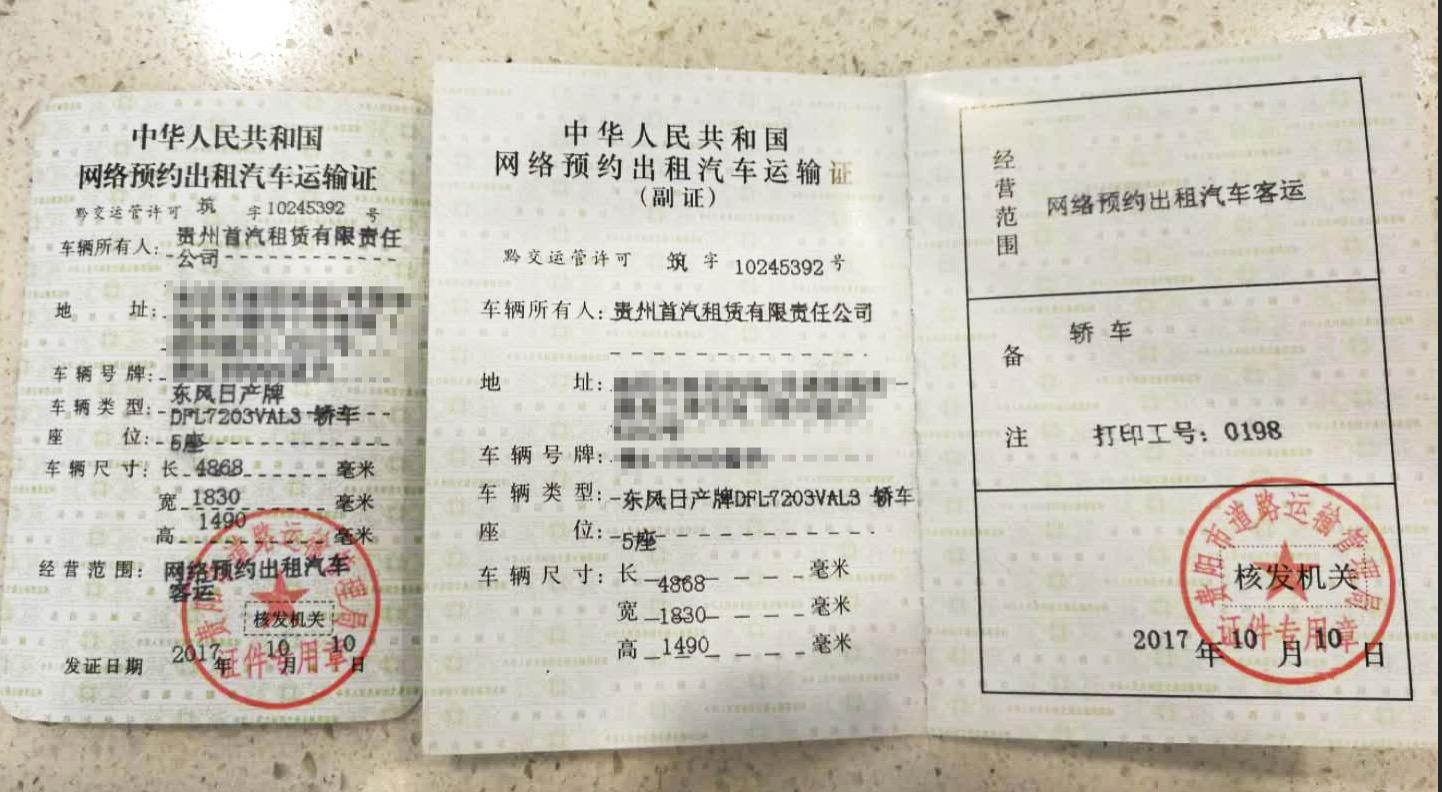 中华人民共和国
网络预约出租汽车运输证
黔交运管许可 筑 字10245392 号
车辆所有人: 贵州首汽租赁有限责任
公司
地 址:
车辆号牌:
东风日产牌
车辆类型: DFL7203VAL3 轿车
座 位: 5座
车辆尺寸: 长 4868 毫米
宽 1830 毫米
高 1490 毫米
经营范围: 网络预约出租汽车
客运
核发机关
发证日期 2017 年 10 月 10 日
贵阳市道路运输管理局
证件专用章
中华人民共和国
网络预约出租汽车运输证
(副证)
黔交运管许可 筑 字 10245392 号
车辆所有人: 贵州首汽租赁有限责任公司
地 址:
车辆号牌:
车辆类型: 东风日产牌DFL7203VAL3 轿车
座 位: 5座
车辆尺寸: 长 4868 毫米
宽 1830 毫米
高 1490 毫米
经营范围
网络预约出租汽车客运
备注
轿车
打印工号: 0198
贵阳市道路运输管理局
核发机关
证件专用章
2017 年 10 月 10 日